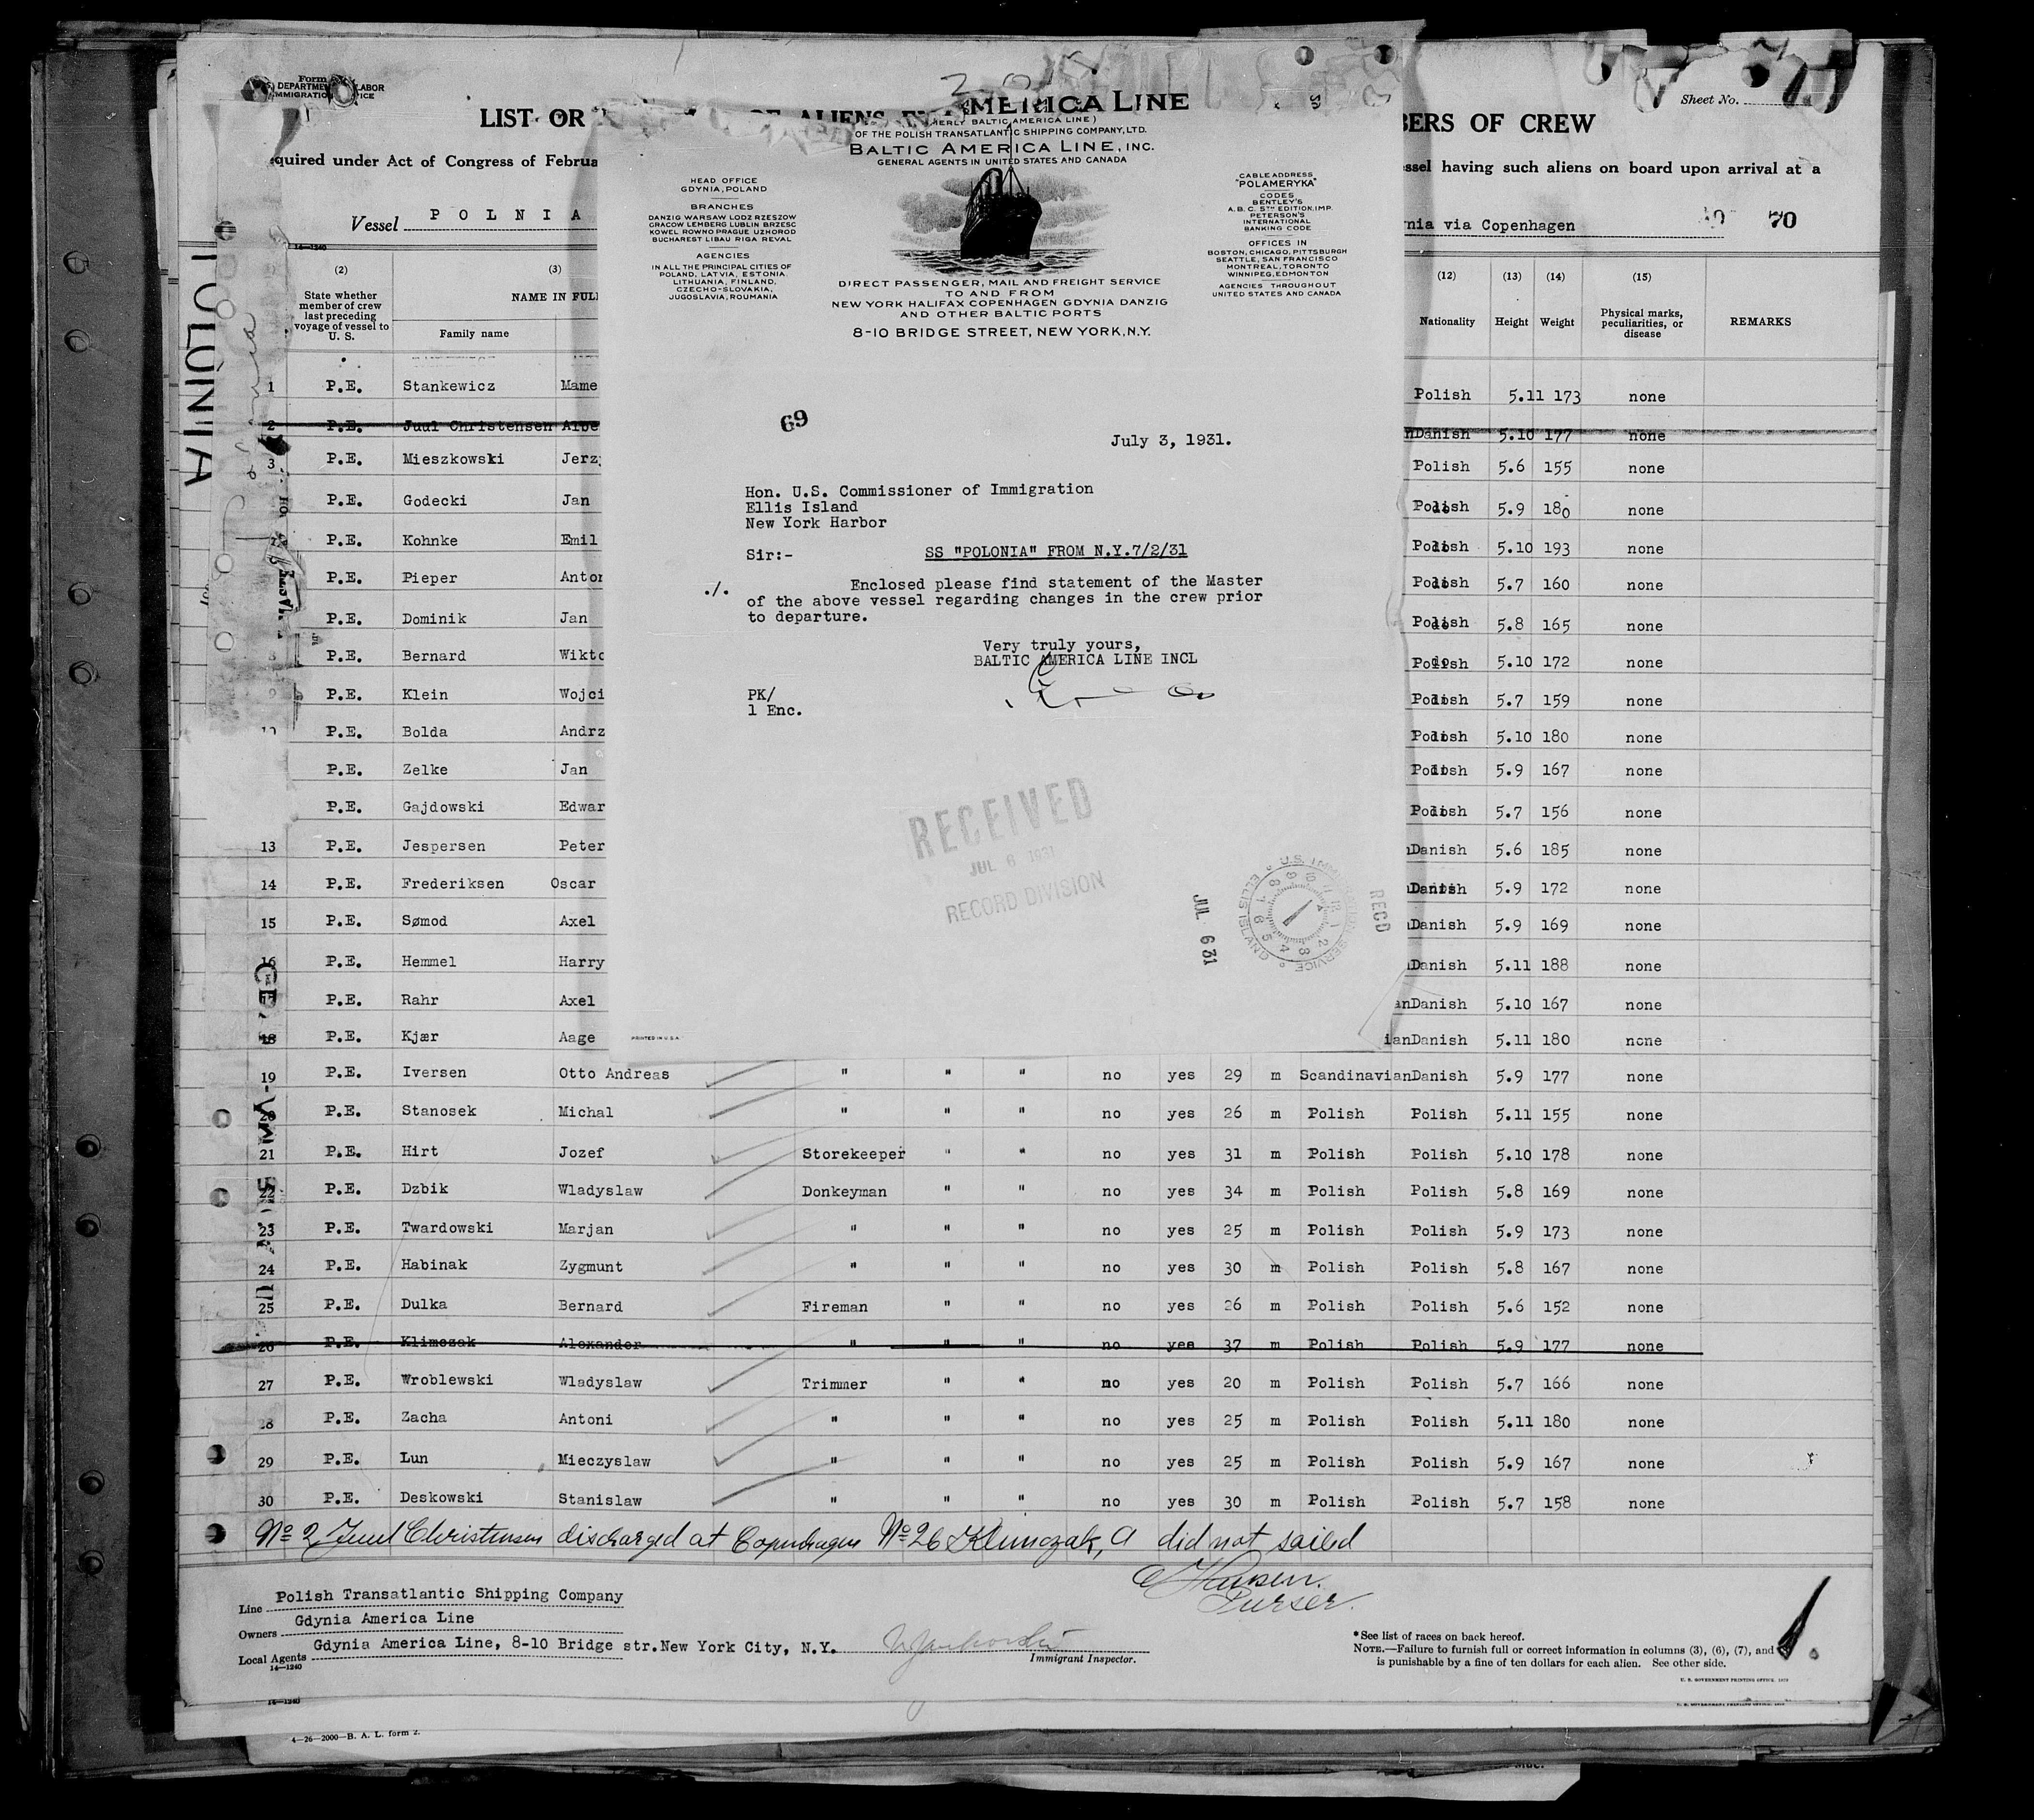 Form
U. S. DEPARTMENT OF LABOR
IMMIGRATION SERVICE
Sheet No.
LIST OR
ALIENS
BERS OF CREW
quired under Act of Congress of Februa
essel having such aliens on board upon arrival at a
Vessel P O L N I A
nia via Copenhagen
70
14—1240
POLONIA
AMERICA LINE
(FORMERLY BALTIC AMERICA LINE)
OF THE POLISH TRANSATLANTIC SHIPPING COMPANY, LTD.
BALTIC AMERICA LINE, INC.
GENERAL AGENTS IN UNITED STATES AND CANADA
HEAD OFFICE
GDYNIA, POLAND
BRANCHES
DANZIG WARSAW LODZ RZESZOW
CRACOW LEMBERG LUBLIN BRZESC
KOWEL ROWNO PRAGUE UZHOROD
BUCHAREST LIBAU RIGA REVAL
AGENCIES
IN ALL THE PRINCIPAL CITIES OF
POLAND, LATVIA, ESTONIA,
LITHUANIA, FINLAND,
CZECHO-SLOVAKIA,
JUGOSLAVIA, ROUMANIA
CABLE ADDRESS
"POLAMERYKA"
CODES
BENTLEY'S
A. B. C. 5TH EDITION. IMP.
PETERSON'S
INTERNATIONAL
BANKING CODE
OFFICES IN
BOSTON, CHICAGO, PITTSBURGH
SEATTLE, SAN FRANCISCO
MONTREAL, TORONTO
WINNIPEG, EDMONTON
AGENCIES THROUGHOUT
UNITED STATES AND CANADA
DIRECT PASSENGER, MAIL AND FREIGHT SERVICE
TO AND FROM
NEW YORK HALIFAX COPENHAGEN GDYNIA DANZIG
AND OTHER BALTIC PORTS
8-10 BRIDGE STREET, NEW YORK, N.Y.
69
July 3, 1931.
Hon. U.S. Commissioner of Immigration
Ellis Island
New York Harbor
Sir:- SS "POLONIA" FROM N.Y.7/2/31
./. Enclosed please find statement of the Master
of the above vessel regarding changes in the crew prior
to departure.
Very truly yours,
BALTIC AMERICA LINE INCL
PK/
1 Enc.
RECEIVED
JUL 6 1931
RECORD DIVISION
JUL 6 31
U.S. IMMIGRATION SERVICE
ELLIS ISLAND
RECD
PRINTED IN U.S.A.
(2) (3) (12) (13) (14) (15)
State whether member of crew last preceding voyage of vessel to U. S.
NAME IN FULL
Family name
Nationality Height Weight Physical marks, peculiarities, or disease REMARKS
1 P.E. Stankewicz Mame Polish 5.11 173 none
2 P.E. Juul Christensen Albe nDanish 5.10 177 none
3 P.E. Mieszkowski Jerzy Polish 5.6 155 none
P.E. Godecki Jan Polish 5.9 180 none
P.E. Kohnke Emil Polish 5.10 193 none
P.E. Pieper Anton Polish 5.7 160 none
P.E. Dominik Jan Polish 5.8 165 none
8 P.E. Bernard Wikto Polish 5.10 172 none
9 P.E. Klein Wojci Polish 5.7 159 none
10 P.E. Bolda Andrz Polish 5.10 180 none
P.E. Zelke Jan Polish 5.9 167 none
P.E. Gajdowski Edwar Polish 5.7 156 none
13 P.E. Jespersen Peter nDanish 5.6 185 none
14 P.E. Frederiksen Oscar nDanish 5.9 172 none
15 P.E. Sømod Axel nDanish 5.9 169 none
16 P.E. Hemmel Harry nDanish 5.11 188 none
P.E. Rahr Axel anDanish 5.10 167 none
18 P.E. Kjær Aage ianDanish 5.11 180 none
19 P.E. Iversen Otto Andreas " " " no yes 29 m ScandinavianDanish 5.9 177 none
20 P.E. Stanosek Michal " " " no yes 26 m Polish Polish 5.11 155 none
21 P.E. Hirt Jozef Storekeeper " " no yes 31 m Polish Polish 5.10 178 none
22 P.E. Dzbik Wladyslaw Donkeyman " " no yes 34 m Polish Polish 5.8 169 none
23 P.E. Twardowski Marjan " " " no yes 25 m Polish Polish 5.9 173 none
24 P.E. Habinak Zygmunt " " " no yes 30 m Polish Polish 5.8 167 none
25 P.E. Dulka Bernard Fireman " " no yes 26 m Polish Polish 5.6 152 none
26 P.E. Klimczak Alexander " " " no yes 37 m Polish Polish 5.9 177 none
27 P.E. Wroblewski Wladyslaw Trimmer " " no yes 20 m Polish Polish 5.7 166 none
28 P.E. Zacha Antoni " " " no yes 25 m Polish Polish 5.11 180 none
29 P.E. Lun Mieczyslaw " " " no yes 25 m Polish Polish 5.9 167 none
30 P.E. Deskowski Stanislaw " " " no yes 30 m Polish Polish 5.7 158 none
No 2 Juul Christensen discharged at Copenhagen No 26 Klimczak, A did not sailed
Hansen.
Purser.
Line Polish Transatlantic Shipping Company
Owners Gdynia America Line
Local Agents Gdynia America Line, 8-10 Bridge str.New York City, N.Y.
Immigrant Inspector.
14—1240
* See list of races on back hereof.
NOTE.—Failure to furnish full or correct information in columns (3), (6), (7), and
is punishable by a fine of ten dollars for each alien. See other side.
U. S. GOVERNMENT PRINTING OFFICE
14—1240
4—26—2000—B. A. L. form 2.